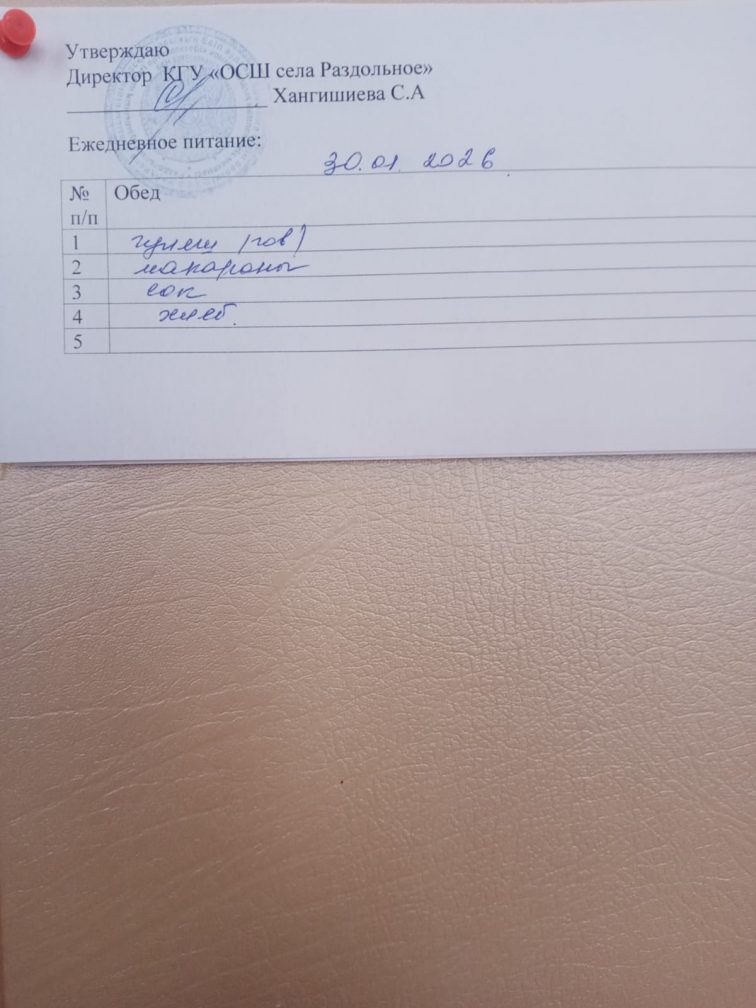 Утверждаю
Директор КГУ «ОСШ села Раздольное»
Хангишиева С.А
Ежедневное питание:
30.01.2026
№ п/п Обед
1 гуляш (гов)
2 макароны
3 сок
4 хлеб.
5